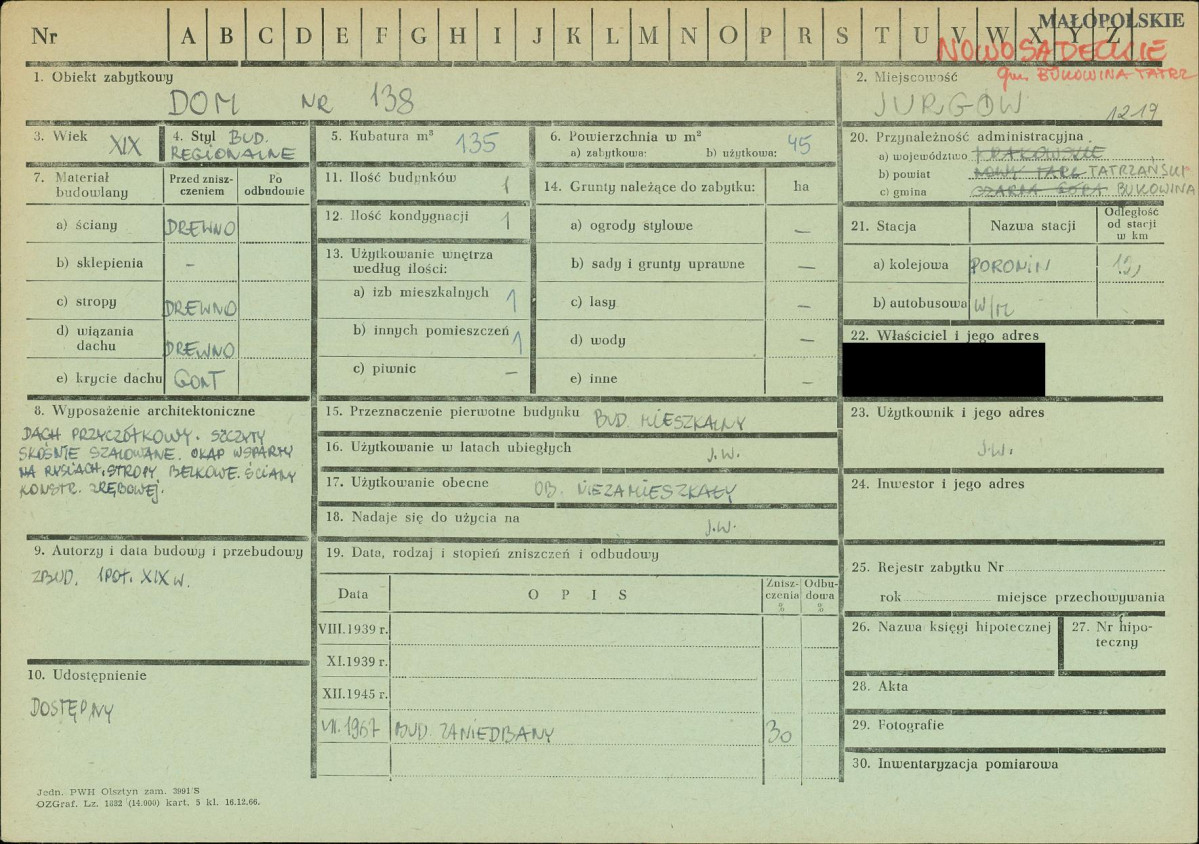 Nr A B C D E F G H I J K L M N O P R S T U V W X Y Z
MAŁOPOLSKIE
NOWOSĄDECKIE
gm. BUKOWINA TATRZ
1. Obiekt zabytkowy
DOM NR 138
2. Miejscowość
JURGÓW 1219
3. Wiek XIX
4. Styl BUD.
REGIONALNE
5. Kubatura m³ 135
6. Powierzchnia w m² 45
a) zabytkowa: b) użytkowa:
7. Materiał budowlany
Przed zniszczeniem
Po odbudowie
a) ściany DREWNO
b) sklepienia –
c) stropy DREWNO
d) wiązania dachu DREWNO
e) krycie dachu GONT
8. Wyposażenie architektoniczne
DACH PRZYCZÓŁKOWY. SZCZYTY
SKOŚNIE SZALOWANE. OKAP WSPARTY
NA RYSIACH, STROPY BELKOWE. ŚCIANY
KONSTR. ZRĘBOWEJ.
9. Autorzy i data budowy i przebudowy
ZBUD. 1 POŁ. XIX W.
10. Udostępnienie
DOSTĘPNY
11. Ilość budynków 1
12. Ilość kondygnacji 1
13. Użytkowanie wnętrza
według ilości:
a) izb mieszkalnych 1
b) innych pomieszczeń 1
c) piwnic –
14. Grunty należące do zabytku: ha
a) ogrody stylowe –
b) sady i grunty uprawne –
c) lasy –
d) wody –
e) inne –
15. Przeznaczenie pierwotne budynku BUD. MIESZKALNY
16. Użytkowanie w latach ubiegłych J.W.
17. Użytkowanie obecne OB. NIEZAMIESZKAŁY
18. Nadaje się do użycia na J.W.
19. Data, rodzaj i stopień zniszczeń i odbudowy
Data OPIS Zniszczenia % Odbudowa %
VIII.1939 r.
XI.1939 r.
XII.1945 r.
VII.1967 BUD. ZANIEDBANY 30
20. Przynależność administracyjna
a) województwo KRAKOWSKIE
b) powiat NOWY TARG TATRZAŃSKI
c) gmina CZARNA GÓRA BUKOWINA
21. Stacja Nazwa stacji Odległość od stacji w km
a) kolejowa PORONIN
b) autobusowa W/M
22. Właściciel i jego adres
23. Użytkownik i jego adres
J.W.
24. Inwestor i jego adres
25. Rejestr zabytku Nr
rok miejsce przechowywania
26. Nazwa księgi hipotecznej
27. Nr hipoteczny
28. Akta
29. Fotografie
30. Inwentaryzacja pomiarowa
Jedn. PWH Olsztyn zam. 3991/S
OZGraf. Lz. 1882 (14.000) kart. 5 kl. 16.12.66.